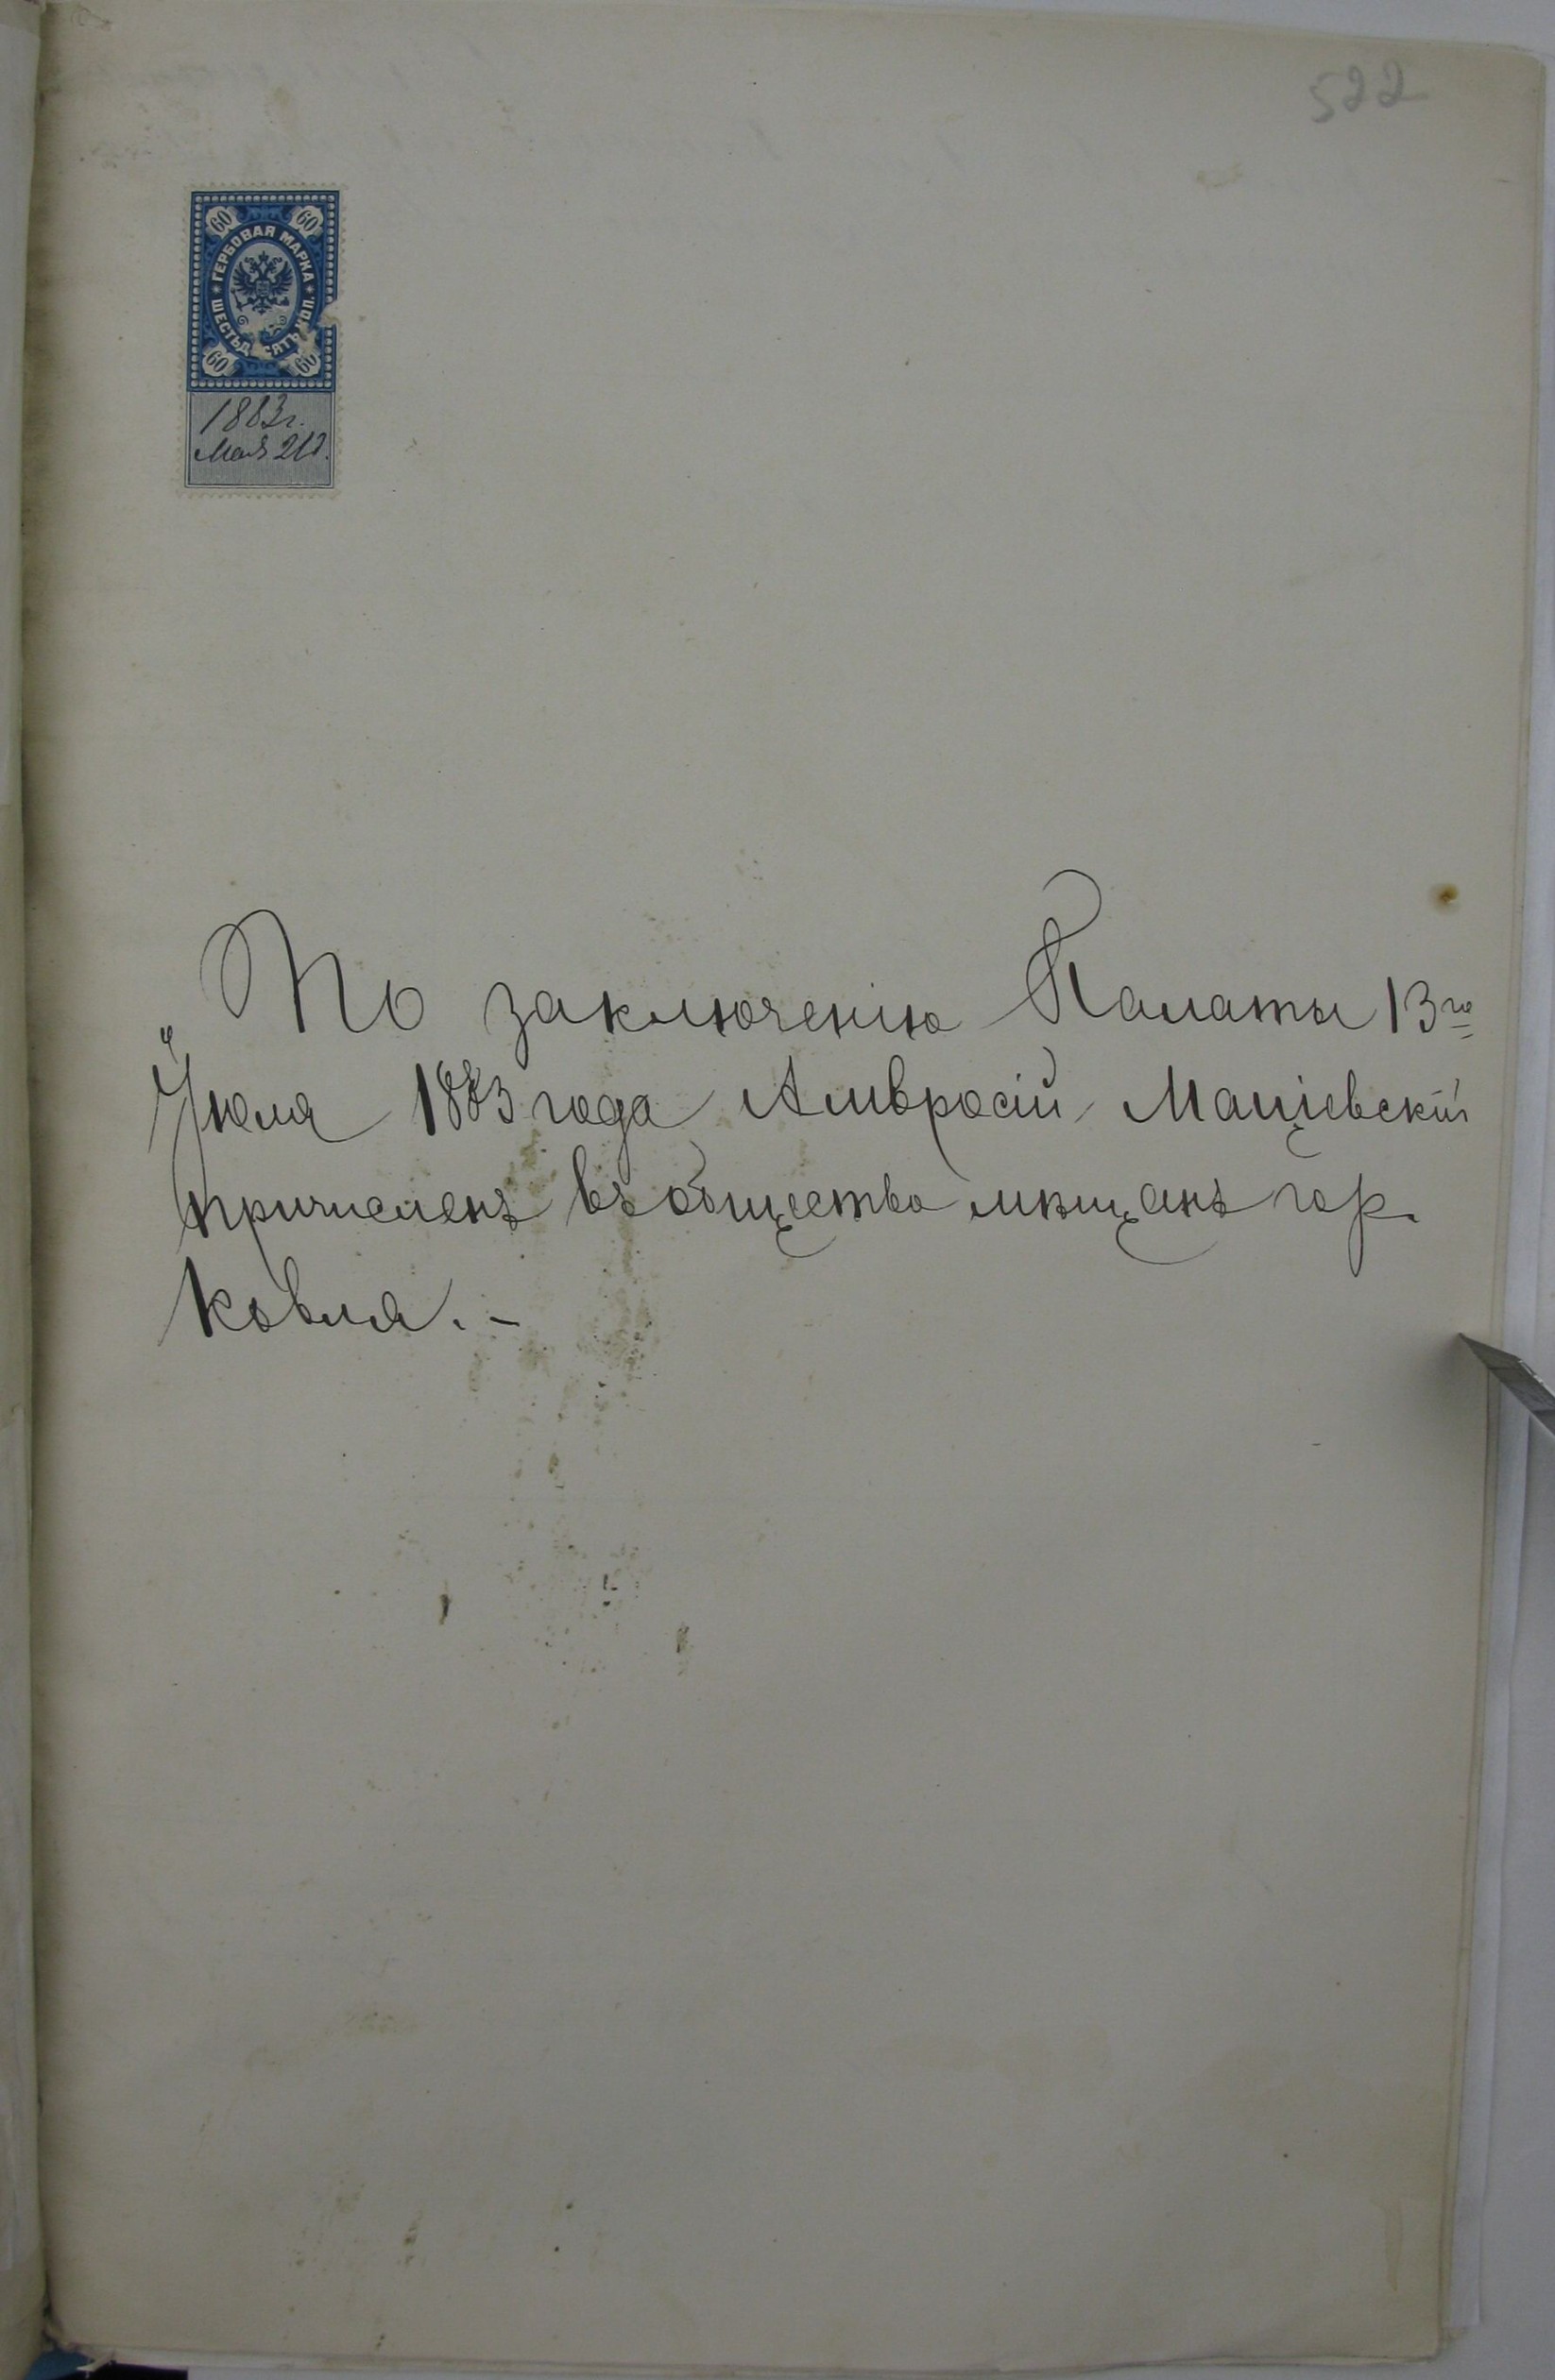 522
60 60
ГЕРБОВАЯ МАРКА
ШЕСТЬДЕСЯТЪ КОП.
60 60
1883 г.
Мая 21 д.
По заключенію Палаты 13го
Іюля 1883 года Амвросій Маціевскій
причисленъ въ общество мѣщанъ гор.
Ковля. –